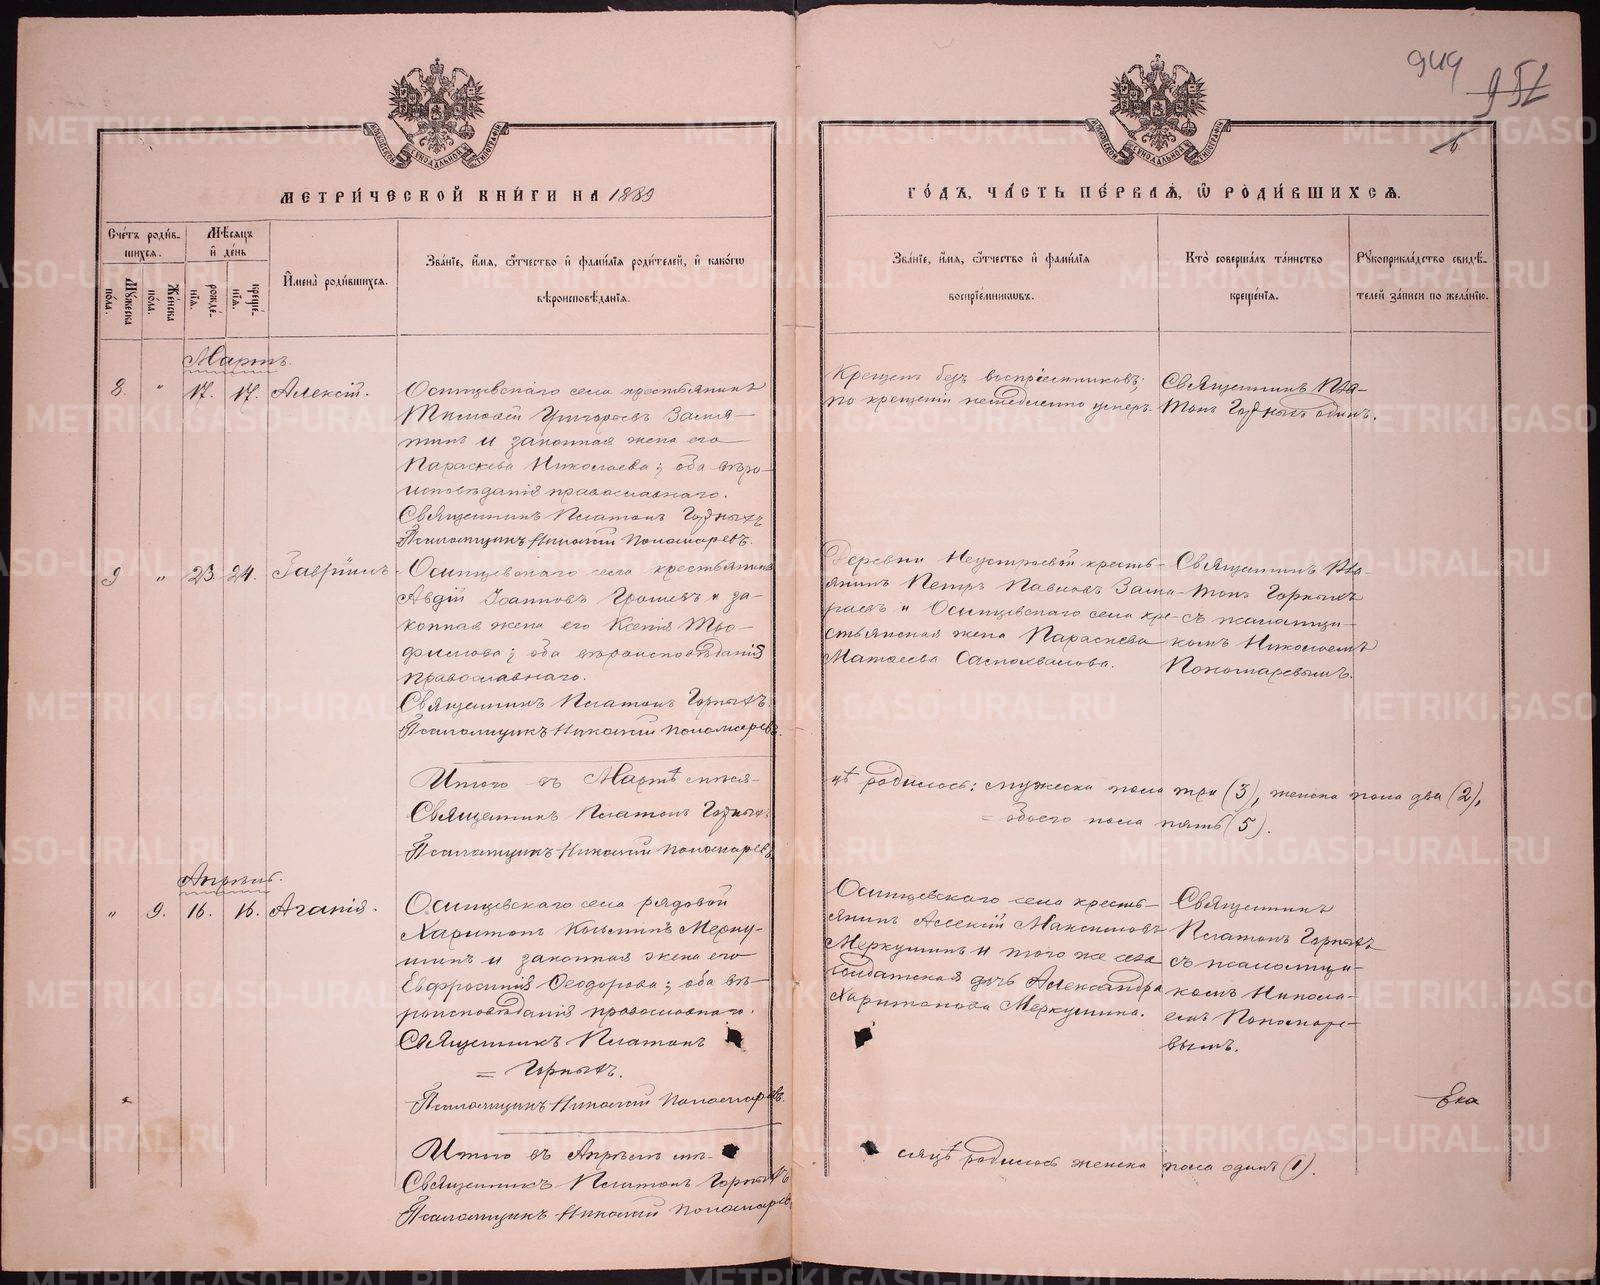 949
952
6.
МЕТРИЧЕСКОЙ КНИГИ НА 1889
ГОДЪ, ЧАСТЬ ПЕРВАЯ, Ѡ РОДИВШИХСЯ.
Счетъ родившихся.
Мужеска пола.
Женска пола.
Мѣсяцъ и день
рожденія.
крещенія.
Имена родившихся.
Званіе, имя, отчество и фамилія родителей, и какого
вѣроисповѣданія.
Званіе, имя, отчество и фамилія
воспріемниковъ.
Кто совершалъ таинство
крещенія.
Рукоприкладство свидѣтелей записи по желанію.
Мартъ.
8. " 17. 17. Алексій.
Осинцевскаго села крестьянинъ
Григорьевъ Замя-
тинъ и законная жена его
Параскева Николаева; оба вѣро-
исповѣданія православнаго.
Священникъ Платонъ Горныхъ
Псаломщикъ Николай Пономаревъ.
Крещенъ безъ воспріемниковъ;
по крещеніи немедленно умеръ.
Священникъ Пла-
тонъ Горныхъ одинъ.
9 " 23. 24. Гавріилъ
Осинцевскаго села крестьянинъ
Авдій Іоанновъ и за-
конная жена его Ксенія Тро-
фимова; оба вѣроисповѣданія
православнаго.
Священникъ Платонъ Горныхъ.
Псаломщикъ Николай Пономаревъ.
Деревни крестья-
янинъ Петръ Павловъ
и Осинцевскаго села кре-
стьянская жена Параскева
Самохвалова.
Священникъ Пла-
тонъ Горныхъ
съ псаломщи-
комъ Николаемъ
Пономаревымъ.
Итого въ Мартѣ мѣся-
цѣ родилось: мужеска пола три (3), женска пола два (2),
= обоего пола пять (5).
Священникъ Платонъ Горныхъ.
Псаломщикъ Николай Пономаревъ
Апрѣль.
" 9. 16. 16. Агапія.
Осинцевскаго села рядовой
Харитонъ Козьминъ Мерку-
шинъ и законная жена его
Евфросинія Ѳеодорова; оба вѣ-
роисповѣданія православнаго.
Священникъ Платонъ
= Горныхъ.
Псаломщикъ Николай Пономаревъ.
Осинцевскаго села кресть-
янинъ Алексій Максимовъ
Меркушинъ и того же села
солдатская дочь Александра
Харитонова Меркушина.
Священникъ
Платонъ Горныхъ
съ псаломщи-
комъ Никола-
емъ Пономаре-
вымъ.
Ека
Итого въ Апрѣлѣ мѣ-
сяцѣ родилось женска пола одинъ (1).
Священникъ Платонъ Горныхъ
Псаломщикъ Николай Пономаревъ
METRIKI.GASO-URAL.RU